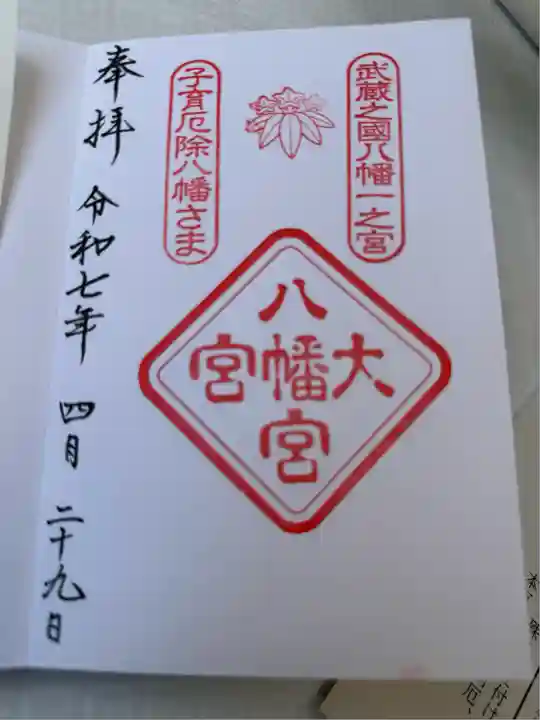 武蔵之國八幡一之宮
子育厄除八幡さま
八幡宮
大宮
奉拝
令和七年 四月 二十九日